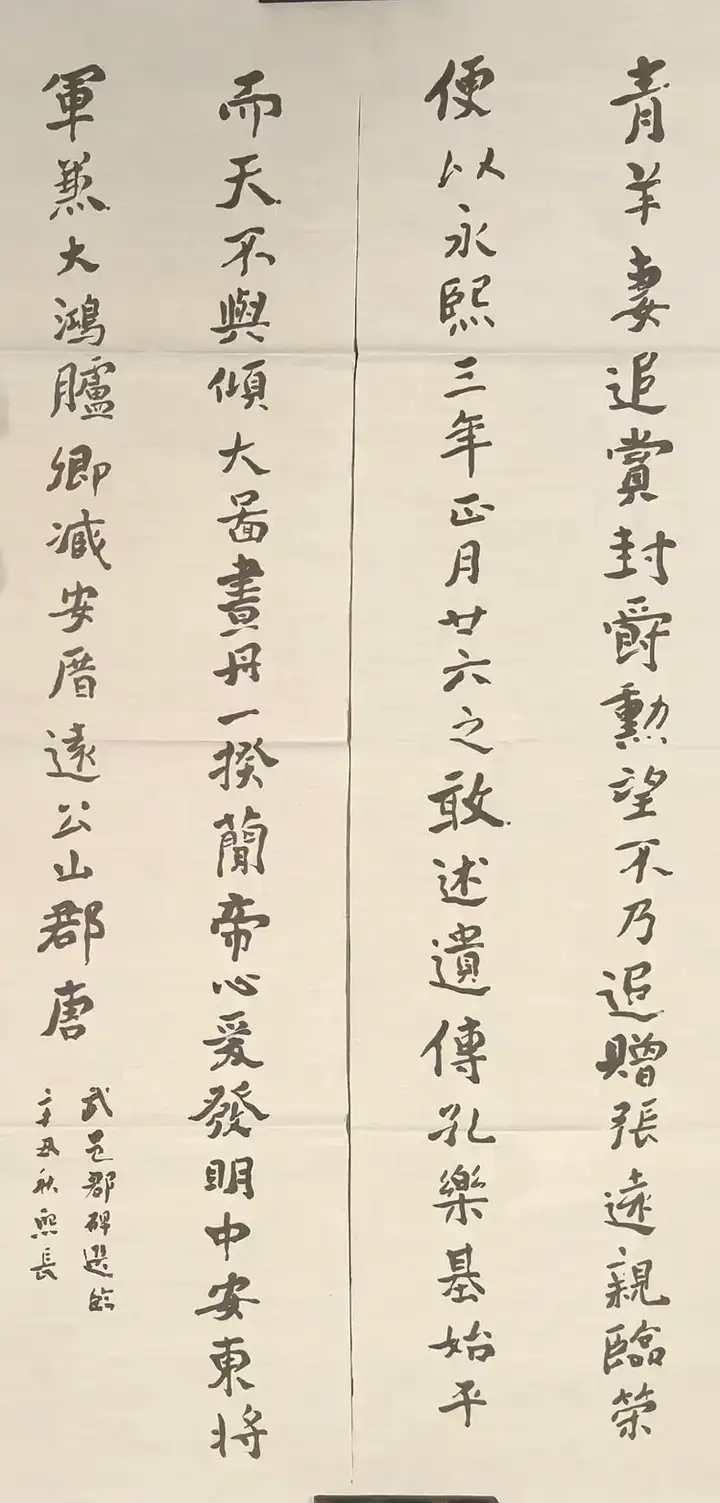 青羊妻追賞封爵勲望不乃追贈張遠親臨榮
便以永熙三年正月廿六之敢述遺傳孔樂基始平
而天不與傾大啚晝丹一揆蘭帝心爰發明中安東将
軍兼大鴻臚卿臧安厝遠公山郡唐
武邑郡碑選臨
辛丑秋熙長